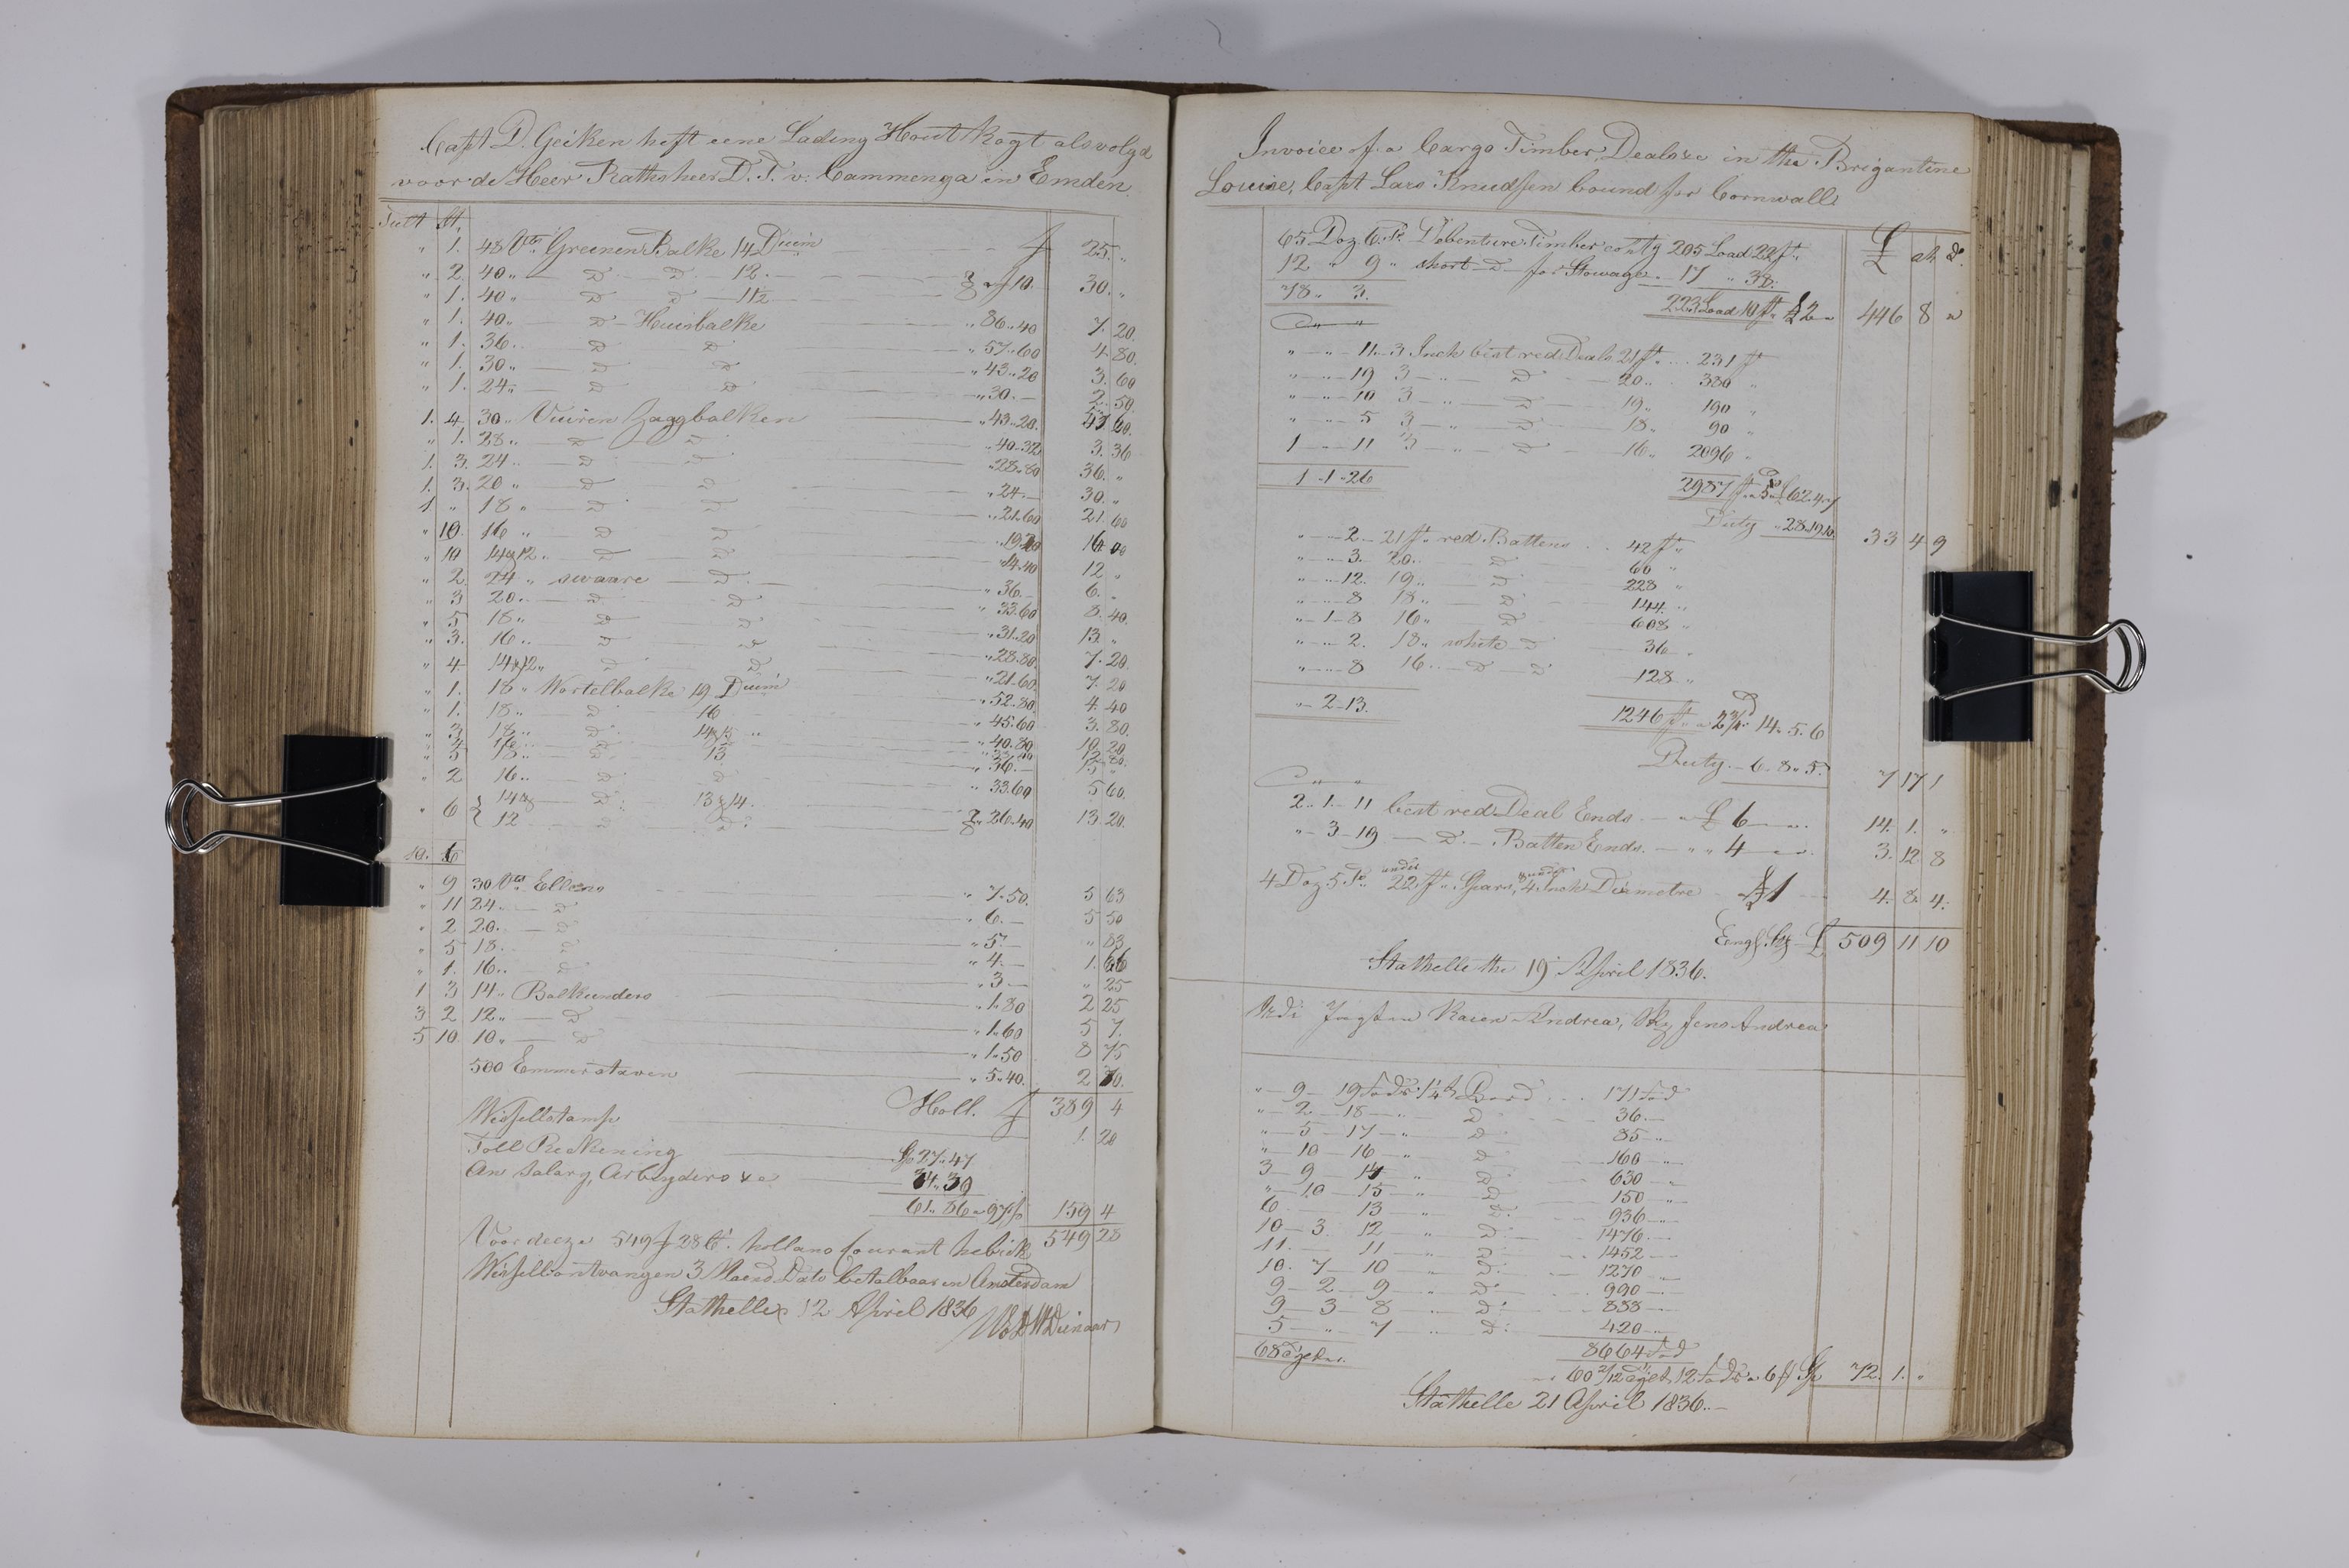 Capt D. Geiken heft eene Lading Hout kogt als volgd
voor de Heer Rathsheer D. T. v. Cammenga in Emden.
Tult St.
" 1. 48 Vts Greenen Balke 14 Duim f 25. "
" 2. 40 " D D 12.
" 1. 40 " D D 11½ f 10. 30. "
" 1. 40 " D Huisbalke " 86.40 7. 20
" 1. 36 " D D " 57.60 4. 80.
" 1. 30 " D D " 43.20 3. 60
" 1. 24 " D D " 30.— 2. 50
1. 4. 30 " Vuiren Zaagbalken " 43.20. 57 60.
" 1. 28 " D D " 40.32 3. 36
1. 3. 24 " D D " 28.80 36. "
1. 3. 20 " D D " 24.— 30. "
1. " 18 " D D " 21.60 21. 60
" 10. 16 " D D 16 00
" 10 14 & 12 " D D " 14.40 12 "
" 2. 24 " swaare D " 36.— 6. "
" 3 20 " D D " 33.60 8. 40.
" 5 18 " D D " 31.20 13. "
" 3. 16 " D D " 28.80. 7. 20.
" 4 14 & 12 " D D " 21.60. 7. 20
" 1. 18 " Wortelbalke 19 Duim " 52.80. 4. 40
" 1. 18 " D 16 " 45.60 3. 80.
" 3 18 " D 14 & 15 " " 40.80 10 20
" 5 18 " D 13 " 36.— 15 "
" 2 16 " D D " 33.60 5 60.
" 6 { 14 & D 13 & 14.
12 D D " 26.40 13. 20.
10. 6
" 9 30 Vts Ellens " 7.50. 5 63
" 11 24 D " 6.— 5 50
" 2 20. D " 5.— " 83
" 5 18. D " 4.— 1. 66
" 1. 16 " D " 3.— " 25
1 3 14 " Balkenders " 1.80 2 25
3 2 12 " D " 1.60 5 7.
5 10 10 " D " 1.50 8 75
500 Emmerstaven " 5.40. 2 70.
Holl. f 389 4
Wissellstamp 1. 20
Toll Reckening Sp 27.47
An Salary, Arbeyders &c 34.39
61.86 a 97 159 4
549 28
Voor deeze 549 f 28 Ct. hollans Courant hebick
Wissell ontvangen 3 Maand Dato betalbaar in Amsterdam
Stathelle 12 April 1836
Invoice of a Cargo Timber, Deals &c in the Brigantine
Louise, Capt Lars Knudsen bound for Cornwall.
£ sh d.
65 Doz 6 Ps Debenture Timber contg 205 Load 22 ft.
12 " 9 " short D for Stowage 17 " 38.
78 " 3. 223 Load 10 ft a £2 " 446 8 "
" " 11 - 3 Inch best red Deals 21 ft 231 ft
" " 19 3 " D 20 " 380 "
" " 10 3 " D 19 " 190 "
" " 5 3 " D 18 " 90 "
1 " 11 3 " D 16 " 2096 "
1 - 1 - 26 2987 ft a 5d £62.4.7
Duty " 28.19.10. 33 4 9
" " 2 - 21 ft red Battens 42 ft "
" " 3. 20 " D 60 "
" " 12. 19 " D 228 "
" " 8 18 " D 144 "
" 1 - 8 16 " D 608 "
" " 2. 18 " white D 36 "
" " 8 16 " D D 128 "
" 2 - 13. 1246 ft a 2¾d 14. 5. 6
Duty - 6. 8. 5. 7 17 1
2 - 1 - 11 best red Deal Ends a £6 14. 1. "
" 3 - 19 D Batten Ends. " " 4 3. 12 8
4 Doz 5 Ps under 22 ft. Spars, under 4 Inch Diametre £1 4. 8. 4.
Engl. Stg £ 509 11 10
Stathelle the 19 April 1836.
Udi Jagten Karen Andrea, Sk Jens Andrea
" 9 - 19 Fods 1¼ t Bord 171 Fod
" 2 - 18 " D 36 "
" 5 - 17 " D 85 "
" 10 - 16 " D 160 "
3 - 9 - 14 " D 630 "
" 10 - 15 " D 150 "
6 - 13 " D 936 "
10 - 3 12 " D 1476 "
11. 11 " D 1452 "
10. 7 10 " D 1270 "
9 - 2 9 " D 990 "
9 - 3 - 8 " D 888 "
5 " 7 " D 420 "
68 8664 Fod
60 2/12 12 Fods a 6 Sp 72. 1. "
Stathelle 21 April 1836.